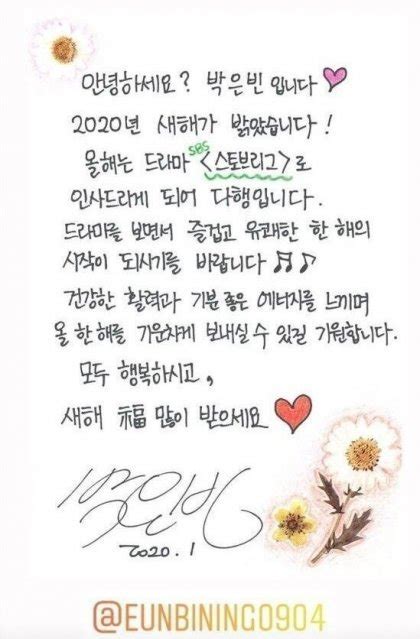 안녕하세요? 박은빈입니다
2020년 새해가 밝았습니다!
올해는 드라마 SBS <스토브리그>로
인사드리게 되어 다행입니다.
드라마를 보면서 즐겁고 유쾌한 한 해의
시작이 되시기를 바랍니다
건강한 활력과 기분 좋은 에너지를 느끼며
올 한해를 기운차게 보내실 수 있길 기원합니다.
모두 행복하시고,
새해 福 많이 받으세요
박은빈
2020.1
@EUNBINING0904